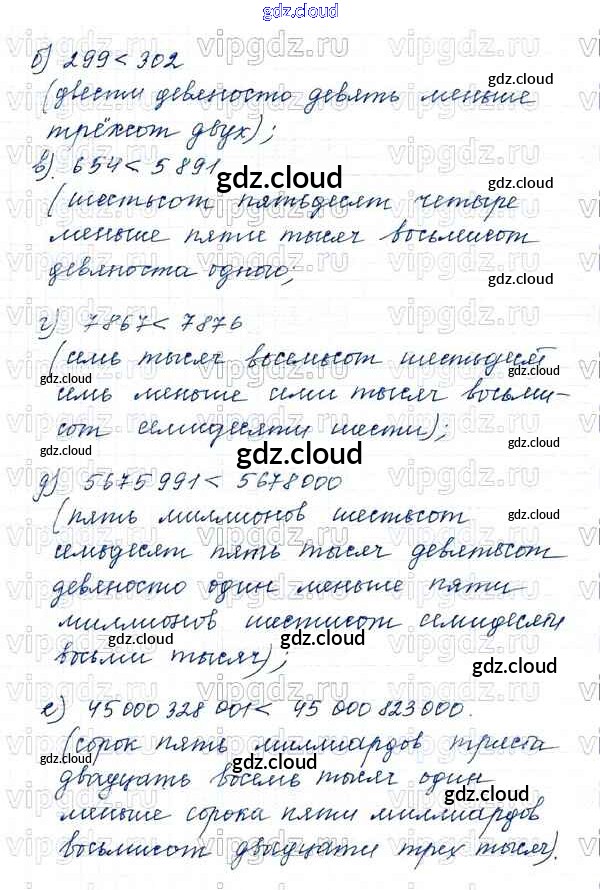 gdz.cloud
б) 299 < 302
(двести девяносто девять меньше
трёхсот двух);
в). 654 < 5891
(шестьсот пятьдесят четыре
меньше пяти тысяч восьмисот
девяноста одного;
г) 7867 < 7876
(семь тысяч восемьсот шестьдесят
семь меньше семи тысяч восьми-
сот семидесяти шести);
д) 5675991 < 5678000
(пять миллионов шестьсот
семьдесят пять тысяч девятьсот
девяносто один меньше пяти
миллионов шестисот семидесяти
восьми тысяч);
е) 45000328001 < 45 000 823000.
(сорок пять миллиардов триста
двадцать восемь тысяч один
меньше сорока пяти миллиардов
восьмисот двадцати трех тысяч).